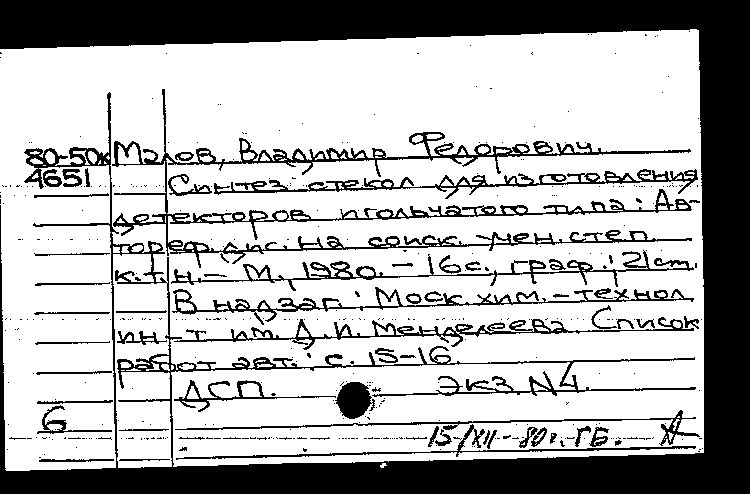 80-50к Малов, Владимир Федорович.
4651 Синтез стекол для изготовления
детекторов игольчатого типа: Ав-
тореф. дис. на соиск. учен. степ.
к.т.н. - М., 1980. - 16с., граф.; 21см.
В надзаг.: Моск. хим.-технол.
ин-т им. Д.И. Менделеева. Список
работ авт.: с. 15-16
ДСП. Экз. N4.
6
15/XII-80г. ГБ.